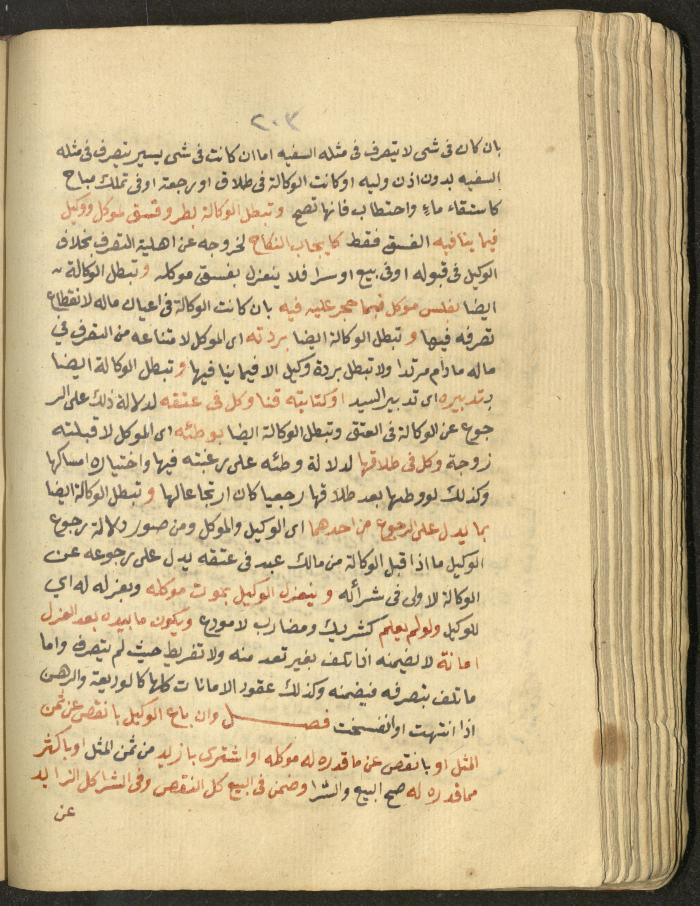 ٢٠٣
بان كان فى شى لا يتصرف فى مثله السفيه اما ان كانت فى شى يسير يتصرف فى مثله
السفيه بدون اذن وليه او كانت الوكالة فى طلاق او رجعة او فى تملك مباح
كاستقاء ماء واحتطاب فانها تصح وتبطل الوكالة بطرو فسق لموكل ووكيل
فيما ينافيه الفسق فقط كايجاب النكاح لخروجه عن اهلية التصرف بخلاف
الوكيل فى قبوله او فى بيع او شرا فلا ينعزل بفسق موكله وتبطل الوكالة
ايضا بفلس موكل فيما حجر عليه فيه بان كانت الوكالة فى اعيان ماله لانقطاع
تصرفه فيها وتبطل الوكالة ايضا بردته اى الموكل لامتناعه من التصرف فى
ماله مادام مرتدا ولا تبطل بردة وكيل الا فيما ينافيها وتبطل الوكالة ايضا
بتدبيره اى تدبير السيد او كتابته قنا وكل فى عتقه لدلالة ذلك على الر
جوع عن الوكالة فى العتق وتبطل الوكالة ايضا بوطئه اى الموكل لا قبلته
زوجة وكل فى طلاقها لدلالة وطئه على رغبته فيها واختياره امساكها
وكذلك لو وطىها بعد طلاقها رجعيا كان ارتجاعا لها وتبطل الوكالة ايضا
بما يدل على الرجوع من احدهما اى الوكيل والموكل ومن صور دلالة رجوع
الوكيل ما اذا قبل الوكالة من مالك عبد فى عتقه يدل على رجوعه عن
الوكالة الاولى فى شرائه وينعزل الوكيل بموت موكله وبعزله له اي
للوكيل ولو لم يعلم كشريك ومضارب لا مودع ويكون ما بيده بعد العزل
امانة لا يضمنه اذا تلف بغير تعد منه ولا تفريط حيث لم يتصرف واما
ما تلف بتصرفه فيضمنه وكذلك عقود الامانات كلها كالوديعة والرهن
اذا انتهت او انفسخت فصل وان باع الوكيل بانقص عن ثمن
المثل او بانقص عن ما قدره له موكله او اشترى بازيد من ثمن المثل او باكثر
مما قدره له صح البيع والشرا وضمن فى البيع كل النقص وفى الشرا كل الزايد
عن